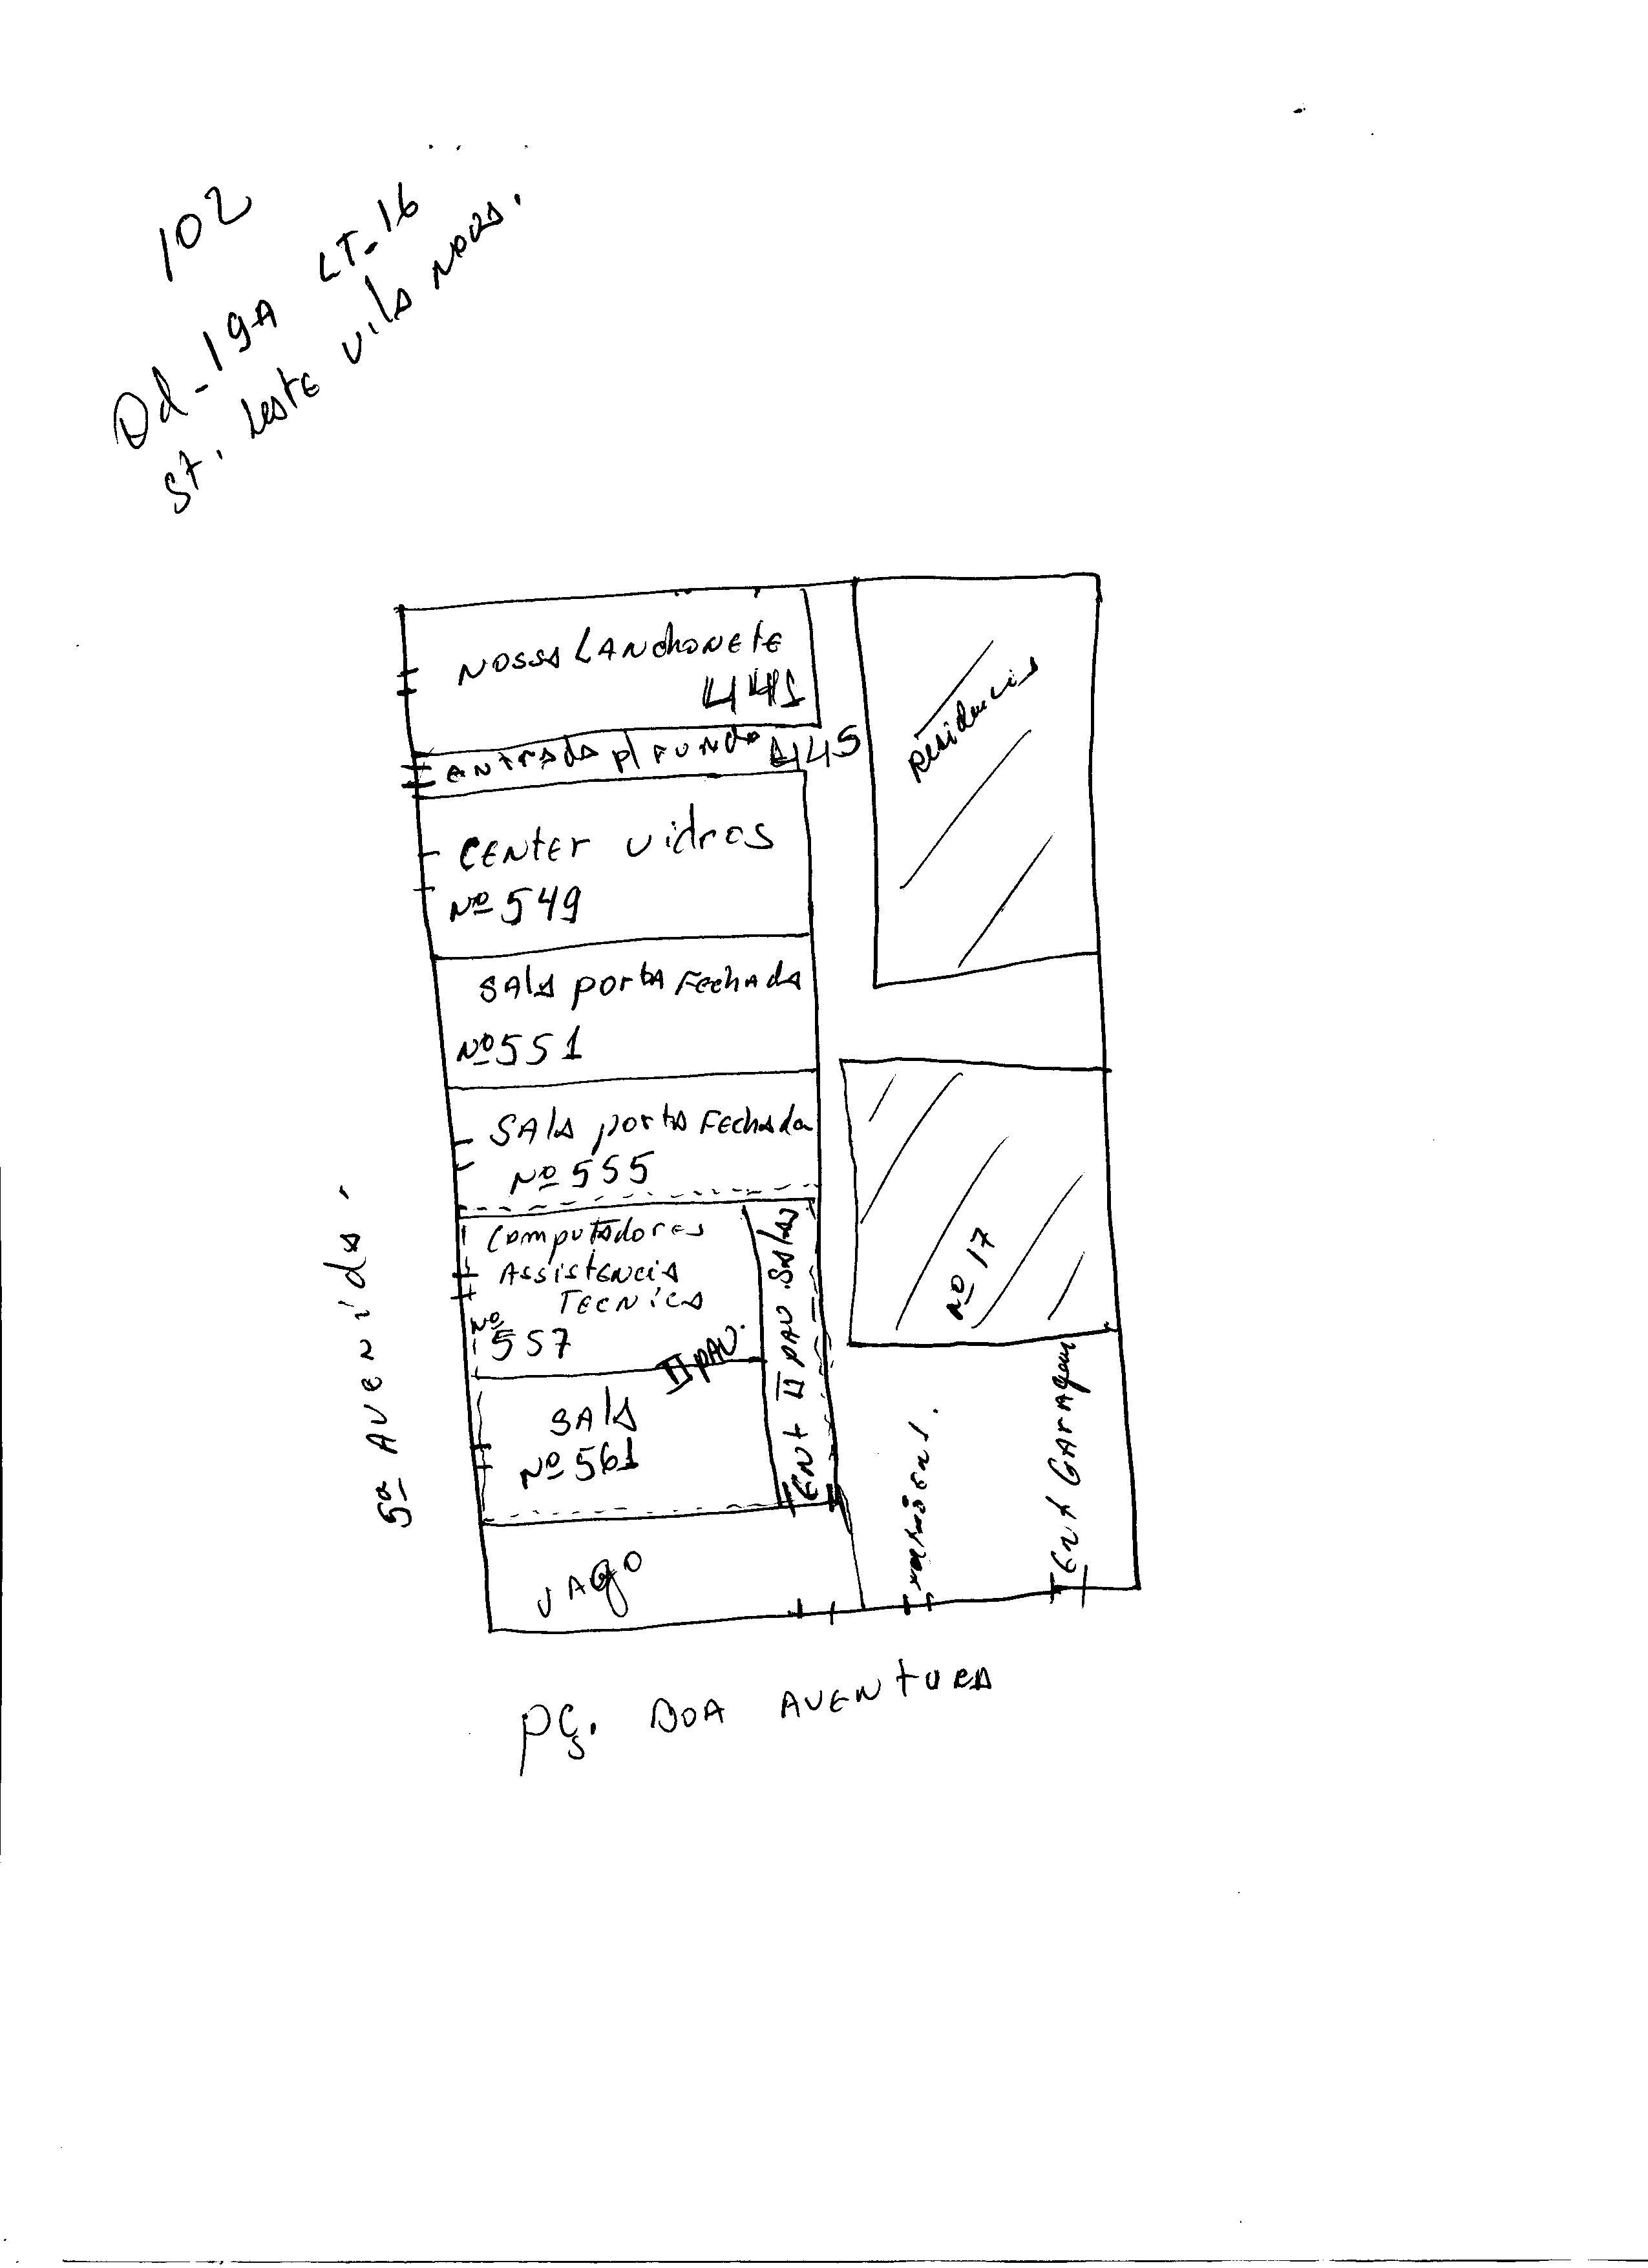 102
Qd-19A LT-16
St. Leste Vila Nova.
NOSSA LANCHONETE
441
ENTRADA p/ FUNDO 445
CENTER VIDROS
Nº 549
SALA PORTA FECHADA
Nº 551
SALA PORTA FECHADA
Nº 555
COMPUTADORES
ASSISTENCIA
TECNICA
Nº
557
II PAV.
SALA
Nº 561
ENT II PAV SALAS
VAGO
Residencia
Nº 17
ENT GARAGEM
5ª AVENIDA.
PÇ. BOA AVENTURA